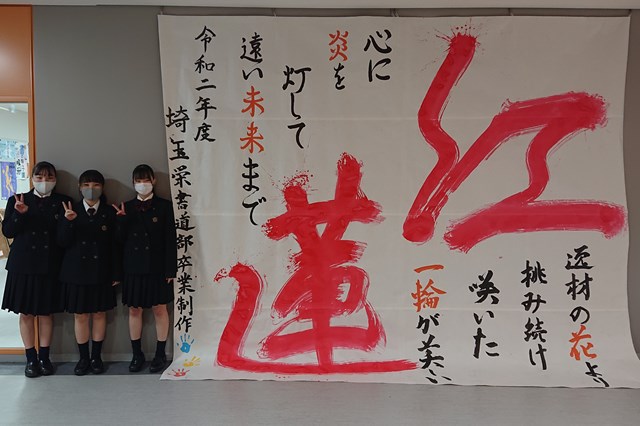 紅
蓮
逸材の花より
挑み続け
咲いた
一輪が美しい
心に
炎を
灯して
遠い未来まで
令和二年度
埼玉栄書道部卒業制作